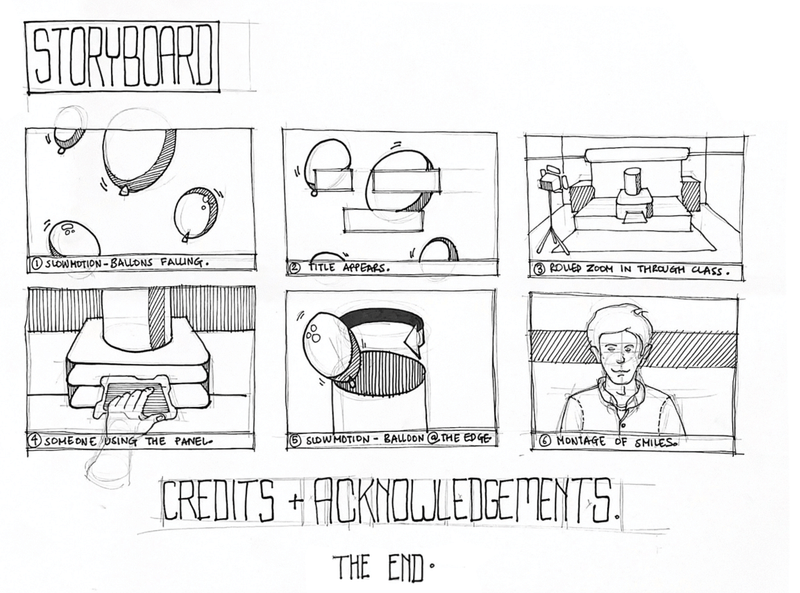 STORYBOARD
① SLOWMOTION - BALLONS FALLING.
② TITLE APPEARS.
③ ROLLED ZOOM IN THROUGH CLASS.
④ SOMEONE USING THE PANEL
⑤ SLOWMOTION - BALLOON @ THE EDGE
⑥ MONTAGE OF SMILES.
CREDITS + ACKNOWLEDGEMENTS.
THE END.